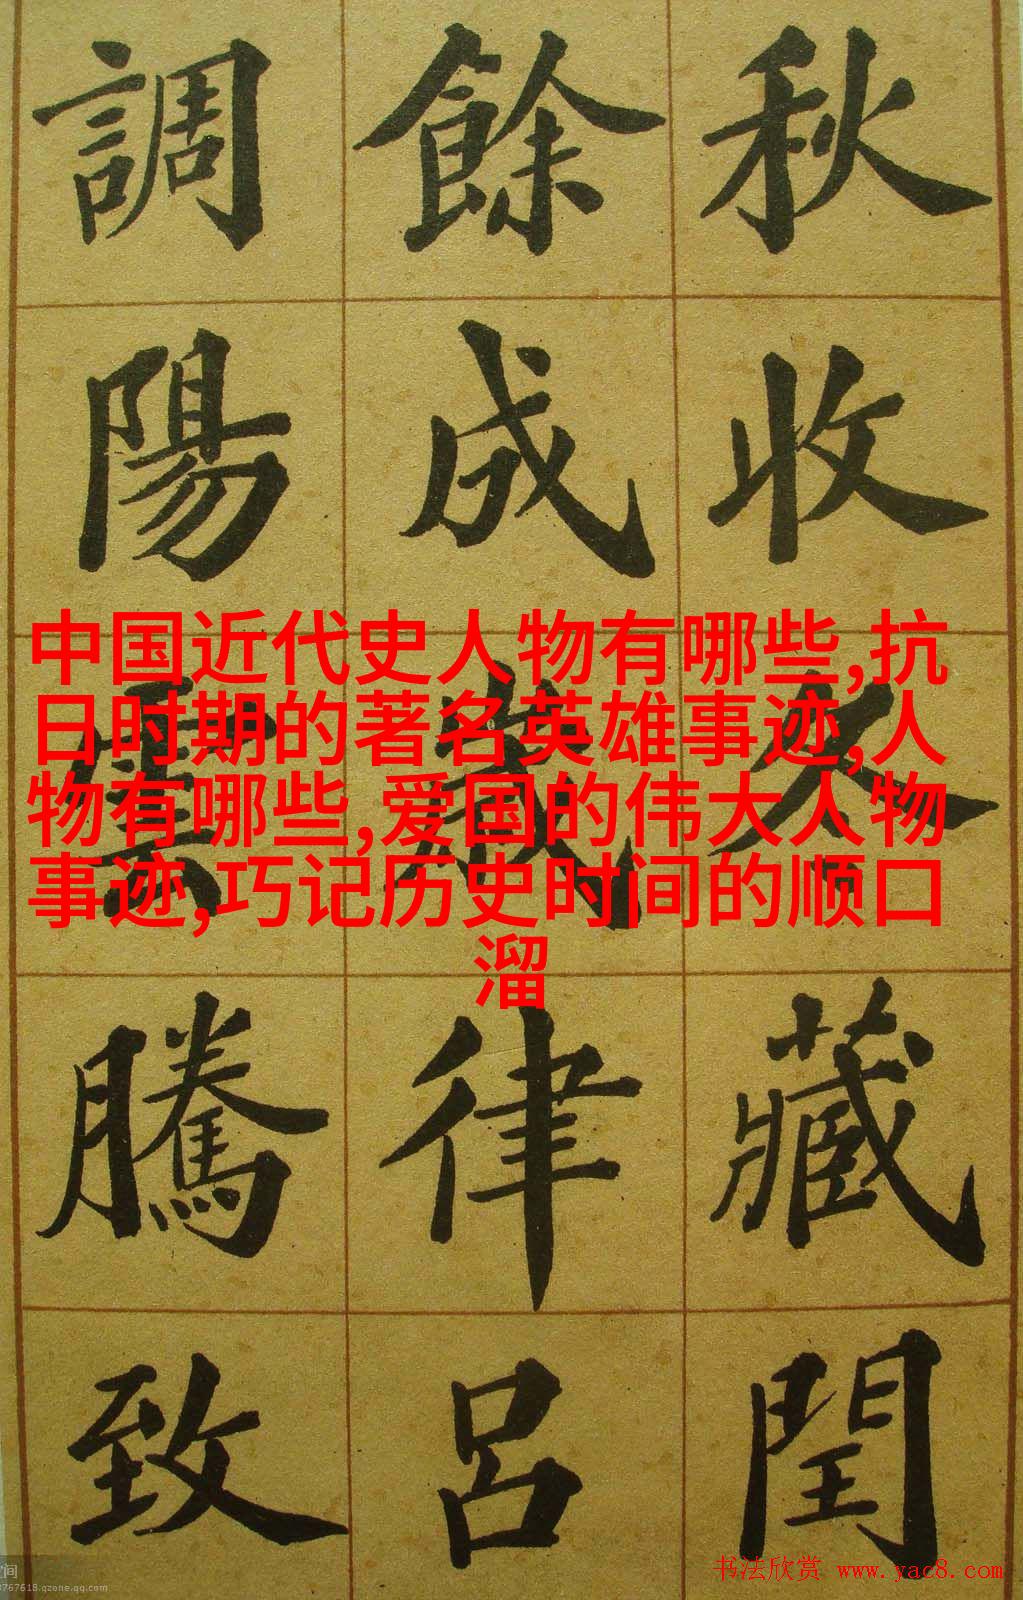 秋收冬藏閏
餘成歲律呂
調陽雲騰致
中国近代史人物有哪些,抗
日时期的著名英雄事迹,人
物有哪些,爱国的伟大人物
事迹,巧记历史时间的顺口
溜
书法欣赏 www.yac8.com
空间
3767618.qzone.qq.com